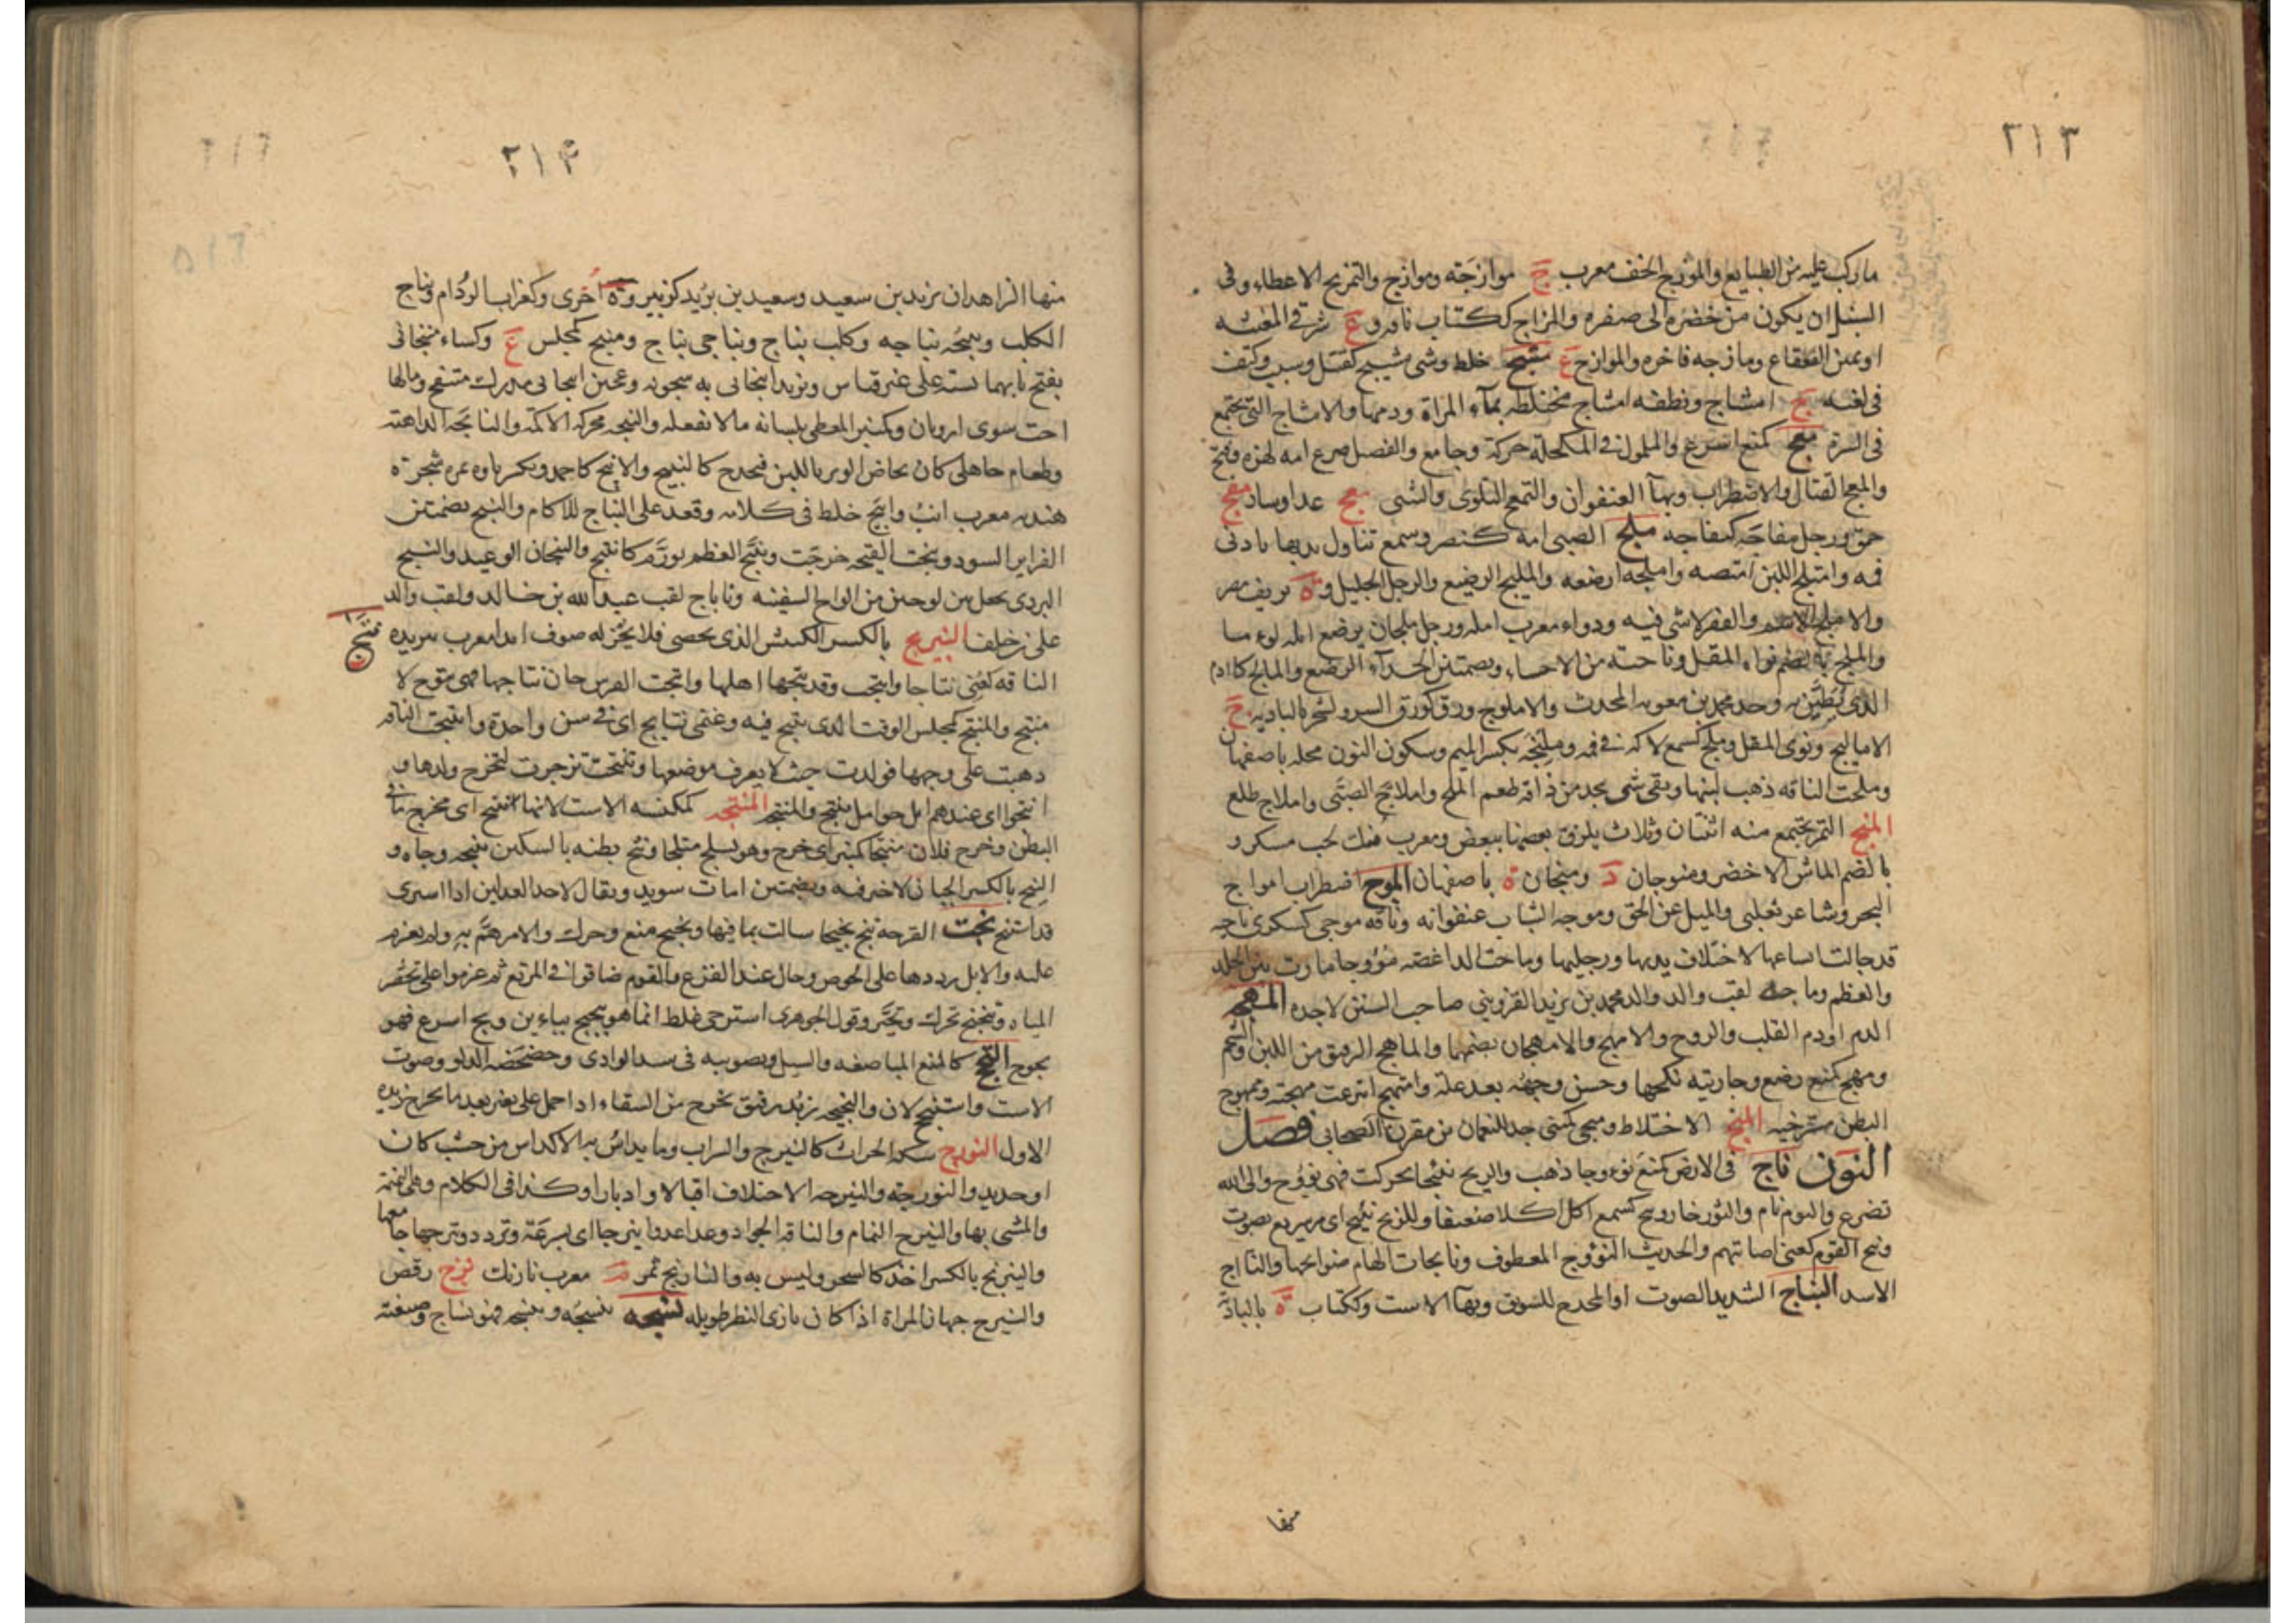 ٢١٣
ما ركب عليه من الطبايع والموزج الخف معرب ج موازجة وموازج والتمزيج الاعطاء وفي
السنبل ان يكون من خضرة الى صفرة والمزاج ككتاب ناقة و ع شرقي المغيثة
او يمين القعقاع ومازجه فاخره والموازج ع مشج خلط وشي مشيج كقتيل وسبب وكتف
في لغته ج امشاج ونطفة امشاج مختلطة بماء المراة ودمها والامشاج التي تجتمع
في السرة معج كمنع اسرع والملمول في المكحلة حركه وجامع والفصيل ضرع امه لهزه وفتح
والمعج القتال والاضطراب وبهاء العنفوان والتمعج التلوي والتثني مفج عدا وساد مفج
حمق ورجل مفاجة كنفاجة ملج الصبي امه كنصر وسمع تناول ثديها بادنى
فمه وامتلج اللبن امتصه واملجه ارضعه والمليج الرضيع والرجل الجليل و ة بريف مصر
والاملج الاسمر والقفر لا شي فيه ودواء معرب امله ورجل ملجان يرضع ابله لوما
والملج بالضم نواة المقل وناحية من الاحساء وبضمتين الجداء الرضع والمالج كادم
الذي يطين به وجد محمد بن معوية المحدث والاملوج ورق كورق السرو لشجر بالبادية ج
الاماليج ونوى المقل وملج كسمع لاكه في فمه وملنجة بكسر الميم وسكون النون محلة باصفهان
وملجت الناقة ذهب لبنها وبقي شي يجد من ذاقه طعم الملح واملاج الصبي واملاج طلع
المنج التمر تجتمع منه اثنتان وثلاث يلزق بعضها ببعض ومعرب منك لحب مسكر و
بالضم الماش الاخضر ومنوجان د ومنجان ة باصفهان الموج اضطراب امواج
البحر وشاعر تغلبي والميل عن الحق وموجة الشباب عنفوانه وناقة موجى كسكرى ناجية
قد جالت انساعها لاختلاف يديها ورجليها وماجت الداغصة مؤوجا مارت بين الجلد
والعظم وماجه لقب والد محمد بن يزيد القزويني صاحب السنن لا جده المهجة
الدم او دم القلب والروح والامهج والامهجان بضمهما والماهج الرقيق من اللبن والشحم
ومهج كمنع رضع وجاريته نكحها وحسن وجهه بعد علة وامتهج انتزعت مهجته وممهوج
البطن مسترخيه الميج الاختلاط وميجى كشتى جد النعمان بن مقرن الصحابي فصل
النون ناج في الارض كمنع نؤوجا ذهب والريح نئيجا تحركت فهي نؤوج والى الله
تضرع والبوم نام والثور خار ونئج كسمع اكل اكلا ضعيفا وللريح نئيج اي مر سريع بصوت
ونئج القوم كعني اصابتهم والحديث المنؤوج المعطوف ونائجات الهام صوائحها والنااج
الاسد النباج الشديد الصوت او المجدح للسويق وبهاء الاست وككتاب ة بالبادية
منها
٢١٤
منها الزاهدان يزيد بن سعيد وسعيد بن بريد كزبير و ة اخرى وكغراب الردام ونباج
الكلب ونبيجه نباحه وكلب نباج ونباجي نباح ومنبج كمجلس ع وكساء منبجاني
بفتح بائهما نسبة على غير قياس وثريد انبجاني به سخونة وعجين انبجاني مدرك منتفخ وما لها
اخت سوى ارونان وكمنبر المعطي بلسانه ما لا يفعله والنبجة محركة الاكمة والنابجة الداهية
وطعام جاهلي كان يخاض الوبر باللبن فيجدح كالنبيج والانبج كاحمد وتكسر باوه ثمرة شجرة
هندية معرب انب وانبج خلط في كلامه وقعد على النباج للاكام والنبج بضمتين
الغراير السود ونبجت القبجة خرجت وتنبج العظم تورم كانتبج والنبجان الوعيد والنبيج
البردي يجعل بين لوحين من الواح السفينة ونباج لقب عبد الله بن خالد ولقب والد
علي بن خلف النيبرج بالكسر الكبش الذي يخصى فلا يجز له صوف ابدا معرب نبريده نتجت
الناقة كعني نتاجا وانتجت وقد نتجها اهلها وانتجت الفرس حان نتاجها فهي نتوج لا
منتج والمنتج كمجلس الوقت الذي تنتج فيه وغنمي نتايج اي في سن واحدة وانتتجت الناقة
ذهبت على وجهها فولدت حيث لا يعرف موضعها وتنتجت تزحرت لتخرج ولدها و
انتجوا اي عندهم ابل حوامل تنتج والمنتج المنثجة كمكنسة الاست لانها تنثج اي تخرج ما في
البطن وخرج فلان منثجا كمنبر اي خرج وهو يسلح متثلجا ونثج بطنه بالسكين ينثجه وجاه و
النثج بالكسر الجبان لا خير فيه وبضمتين امات سويد ويقال لاحد العدلين اذا استرخى
قد استنثج نجت القرحة تنج نجيجا سالت بما فيها ونجنج منع وحرك والامر هم به ولم يعزم
عليه والابل رددها على الحوض وجال عند الفزع والقوم صافوا في المرتع ثم عزموا على تحضر
المياه وتنجنج تحرك وتحير وقول الجوهري استرخى غلط انما هو تبجبج بباءين ونج اسرع فهو
نجوج النخج كالمنع المباضعة والسيل وتصويبه في سند الوادي وخضخضة الدلو وصوت
الاست واستنخج لان والنخيجة زبد رقيق يخرج من السقاء اذا حمل على بعير بعد ما يخرج زبده
الاول النورج سكة الحراث كالنيرج والسراب وما يداس به الاكداس من خشب كان
او حديد والنورجة والنيرجة الاختلاف اقبالا وادبارا وكذا في الكلام وهي النميمة
والمشي بها والنيرج النمام والناقة الجواد وعدا عدوا نيرجا اي بسرعة وتردد ونيرجها جامعها
والنيرنج بالكسر اخذ كالسحر وليس به والنارنج ثمر م معرب نارنك نزج رقص
والنيزج جهاز المراة اذا كان نازي البظر طويله نسجه ينسجه وينسجه فهو نساج وصنعته